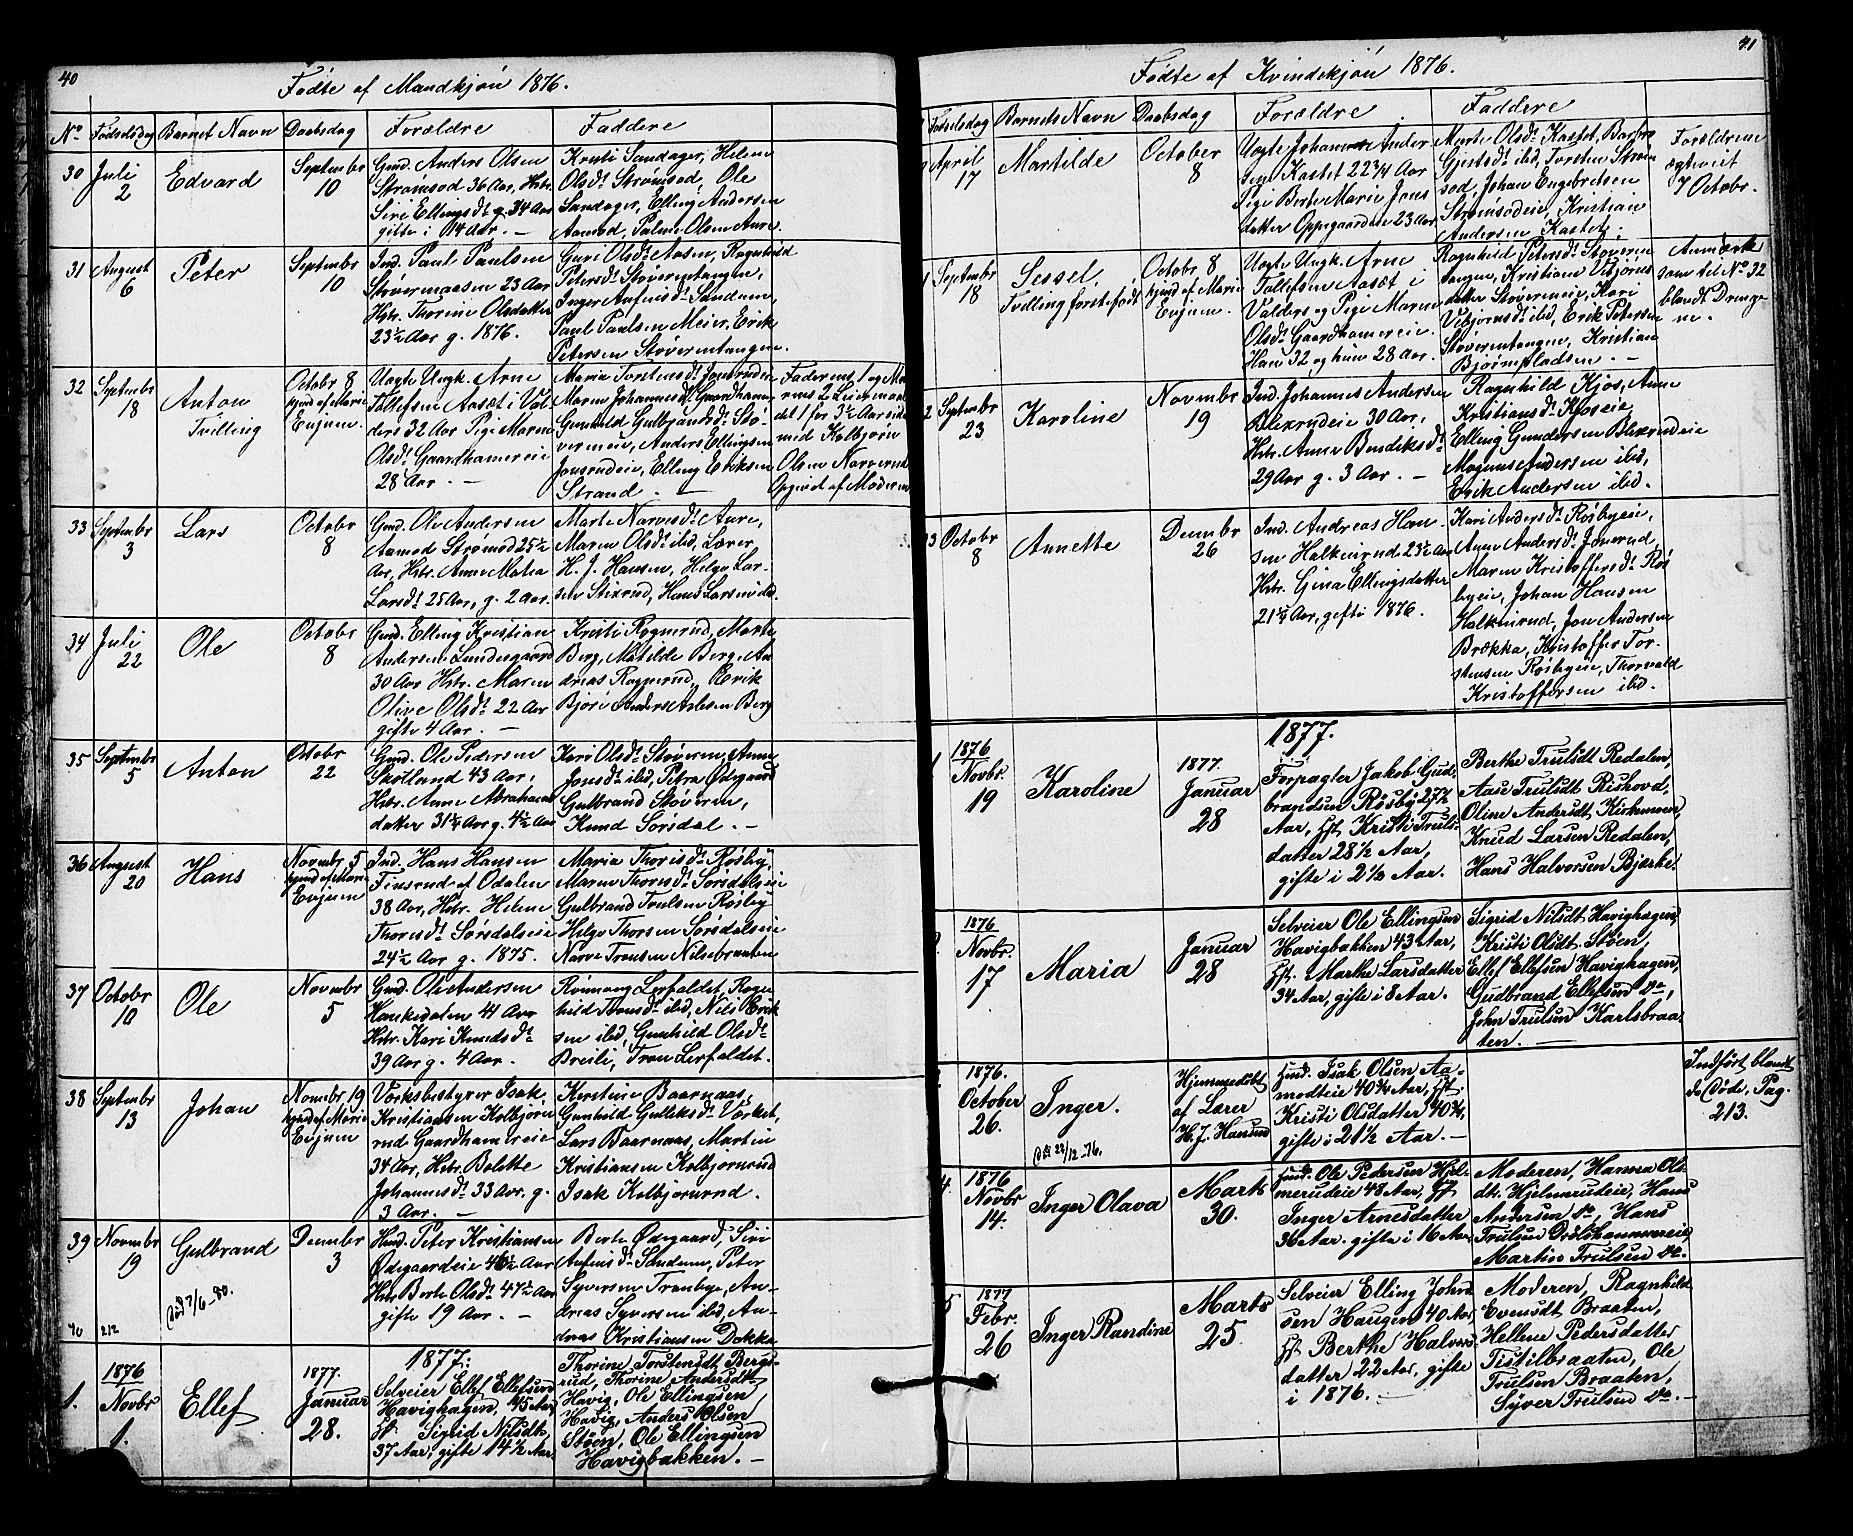 40
Fødte af Mandkjøn 1876.
No. Fødselsdag Barnets Navn Daabsdag Forældre Faddere
30 Juli 2
Edvard
Septembr 10
Gmd. Anders Olsen
Strømsod 36 Aar, Hstr.
Siri Ellingsdr. g. 34 Aar
gifte i 14 Aar. –
Kristi Sandager, Helene
Olsdr. Strømsod, Ole
Sandager, Elling Andersen
Aamod, Palme Olsen Aure.
31 August 6
Peter
Septembr 10
Ind. Paul Paulsen
Støvernaasen 23 Aar
Hstr. Thorine Olsdatter
23½ Aar g. 1876.
Guri Olsdr. Aasen, Ragnhild
Petersdr. Støverntangen,
Inger Anfinsdr. Sandum,
Paul Paulsen Meier, Erik
Petersen Støverntangen.
32 Septembr 18
Anton
Tvilling
Octobr 8
hjmd. af Marie
Evjum.
Uægte Ungk. Arne
Tollefsen Aasæt i Val-
ders 32 Aar Pige Maren
Olsdr. Gaardhamereie
28 Aar. –
Maria Torstensdr. Jonsrudeie
Maren Johannesdr. Gaardhamr.
Gunhild Gulbrandsdr. Stø-
verneie, Anders Ellingsen
Jonsrudeie, Elling Eriksen
Strand. –
Faderens 1 og Mo-
rens 2 Leiermaal
det 1 for 3½ Aar siden
med Kolbjørn
Olsen Narverud
Opgivet af Moderen
33 Septembr 3
Lars
Octobr 8
Gmd. Ole Andersen
Aamod Strømsod 25½
Aar, Hstr. Anne Matea
Larsdr. 25 Aar, g. 2 Aar.
Marte Narvesdr. Aure,
Maren Olsdr. ibid, Lærer
H. J. Hansen, Helge Lar-
sen Stixrud, Hans Larsen ibd.
34 Juli 22
Ole
Octobr 8
Gmd. Elling Kristian
Andersen Lundesgaard
30 Aar Hstr. Maren
Olive Olsdr. 22 Aar
gifte 4 Aar. –
Kristi Rognerud, Marte
Berg, Matilde Berg, An-
dreas Rognerud, Erik
Bjøre Anders Arlesen Berg
35 Septembr 5
Anton
Octobr 22
Gmd. Ole Pedersen
Skotland 43 Aar,
Hstr. Anne Abraham-
datter 31¼ Aar g. 4½ Aar
Kari Olsdr. Støveren, Anne
Jonsdr. ibid, Petra Ødegaard
Gulbrand Støveren,
Knud Sørsdal. –
36 August 20
Hans
Novembr 5
hjmd. af Marie
Evjum
Ind. Hans Hansen
Finsrud af Odalen
38 Aar, Hstr. Helene
Thorisdr. Sørsdalseie
24½ Aar g. 1875.
Maria Thorisdr. Røsby,
Maren Thorsdr. Sørsdalseie
Gulbrand Trulsen Røsby
Helge Thorsen Sørsdalseie
Narve Tronsen Nilsebraaten
37 Octobr 10
Ole
Novembr 5
Gmd. Ole Andersen
Haukedalen 41 Aar
Hstr. Kari Knudsdr.
39 Aar g. 4 Aar.
Rønnaug Lerfaldet, Ragn-
hild Tronsdr. ibid, Nils Erik-
sen ibid, Gunhild Olsdr.
Breili, Tron Lerfaldet.
38 Septembr 13
Johan
Novembr 19
hjmd. af Marie
Evjum
Værksbestyrer Isak
Kristiansen Kolbjørn-
rud Gaardhamereie
34 Aar, Hstr. Bolette
Johannesdr. 33 Aar. g.
3 Aar. –
Kerstine Baarnaas,
Gunhild Gulliksdr. Værket,
Lars Baarnaas, Martin
Kristiansen Kolbjørnrud
Isak Kolbjørnrud.
39 Novembr 19
Gulbrand
Død 7/6–80.
Decembr 3
Hmd. Peter Kristiansen
Ødegaardeie 46½ Aar
Hstr. Berte Olsdr. 47½ Aar
gifte 19 Aar. –
Berte Ødegaard, Siri
Anfinsdr. Sandum, Peter
Syversen Tranbye, An-
dreas Syversen ibid, An-
dreas Kristiansen Dokka
40 212
1. 1876 Novbr 1.
Ellef
1877. Januar 28.
1877.
Selveier Ellef Ellefsen
Havighagen, 45 Aar,
Hst. Sigrid Nilsdt.
37 Aar, gifte 14½ Aar.
Thorine Torstensdt Bergs-
rud, Thorine Andersdt.
Havig, Ole Ellingsen
Havig, Anders Olsen
Støen, Ole Ellingsen
Havigbakken. –
41
Fødte af Kvindekjøn 1876.
Fødselsdag Barnets Navn Daabsdag Forældre Faddere
April 17
Martilde
October 8
Uægte Johannes Ander-
sen Kastet 22¾ Aar
Pige Berte Marie Jons-
datter Oppegaardeie 23 Aar
Marte Olsdr. Kastet, Barbro
Gjestsdr. ibid, Torsten Strøm-
sod, Johan Engebretsen
Strømsodeie, Kristian
Andersen Kastet.
Forældrene
ægteviet
7 Octobr.
Septembr 18
Sessel,
Tvilling førstefødt
Octobr 8
hjmd. af Marie
Evjum.
Uægte Ungk. Arne
Tollefsen Aasæt i
Valders og Pige Maren
Olsdr. Gaardhamereie.
Han 32, og hun 28 Aar.
Ragnhild Petersdr. Støvern-
tangen, Kristiane Vebjørns-
datter Støverneie, Kari
Vebjørnsdr. ibid, Erik Petersen
Støverntangen, Kristian
Bjørnpladsen. –
Anmærk.
som til No. 32
blandt Drenge-
ne.
2 Septembr 23
Karoline
Novembr 19
Ind. Johannes Andersen
Blexrudeie 30 Aar,
Hstr. Anne Bendiksdr.
29 Aar g. 3 Aar. –
Ragnhild Kjøs, Anne
Kristiansdr. Kjøseie,
Elling Gundersen Blexrudeie
Magnus Andersen ibid,
Erik Andersen ibid.
3 Octobr 8
Annette
Decembr 26
Ind. Andreas Han-
sen Halkinrud 23½ Aar
Hstr. Gina Ellingsdatter
21½ Aar, gifte 1876.
Kari Andersdr. Røsbyeie,
Anne Andersdr. Jonsrud,
Maren Kristoffersdr. Røs-
byeie, Johan Hansen
Halkinrud, Jon Andersen
Brækka, Kristoffer Tor-
stensen Røsbyeie, Thorvald
Kristoffersen ibd.
1877.
1 1876 Novbr. 19
Karoline
1877. Januar 28
Forpagter Jakob Gud-
brandsen Røsby 27½
Aar, Hst. Kristi Truls-
datter 28½ Aar,
gifte i 2½ Aar.
Berthe Trulsdt Redalen,
Aase Trulsdt Rishovd,
Oline Andersdt Kirkemoen,
Knud Larsen Redalen,
Hans Halvorsen Bjærke.
2. 1876 Novbr. 17
Maria
Januar 28
Selveier Ole Ellingsen
Havigbakken 43 Aar,
Hst. Marthe Larsdatter
34 Aar, gifte i 8 Aar.
Sigrid Nilsdt Havighagen,
Kristi Olsdt Støen,
Ellef Ellefsen Havighagen,
Gudbrand Ellefsen do,
John Trulsen Karlsbraa-
ten. –
1876. October 26.
Inger.
Død 22/12–76.
Hjemmedøbt
af Lærer
H. J. Hansen
Hmd. Isak Olsen Aa-
modteie 40¾ Aar, Hst.
Kristi Olsdatter 40¾,
gifte i 21½ Aar. –
Indført blandt
de Døde, Pag.
213.
4. 1876 Novbr 14.
Inger Olava
Marts 30.
Hmd. Ole Pedersen Hjel-
merudeie 48 Aar, Hst
Inger Arnesdatter
36 Aar. gifte i 16 Aar.
Moderen, Hanna Ols-
dt. Hjelmerudeie, Hans
Andersen do, Hans
Trulsen Drolshammereie,
Martin Trulsen do.
5 1877 Febr. 26
Inger Randine
Marts 25.
Selveier Elling John-
sen Haugen 40 Aar,
Hst Berthe Halvors-
datter 22 Aar, gifte
i 1876. –
Moderen, Ragnhild
Evensdt Braaten,
Hellene Pedersdatter
Tistilbraaten, Ole
Trulsen Braaten,
Syver Trulsen do. –